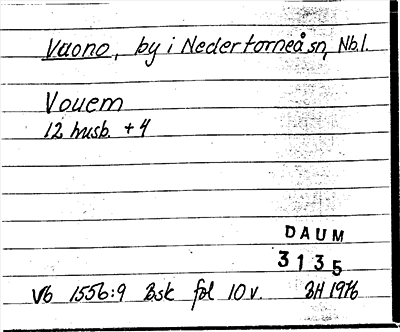 Vaono, by i Nedertorneå sn, Nb.l.
Vouem
12 husb. + 4
DAUM
3135
Vb 1556:9 Bsk fol 10 v. BH 1976